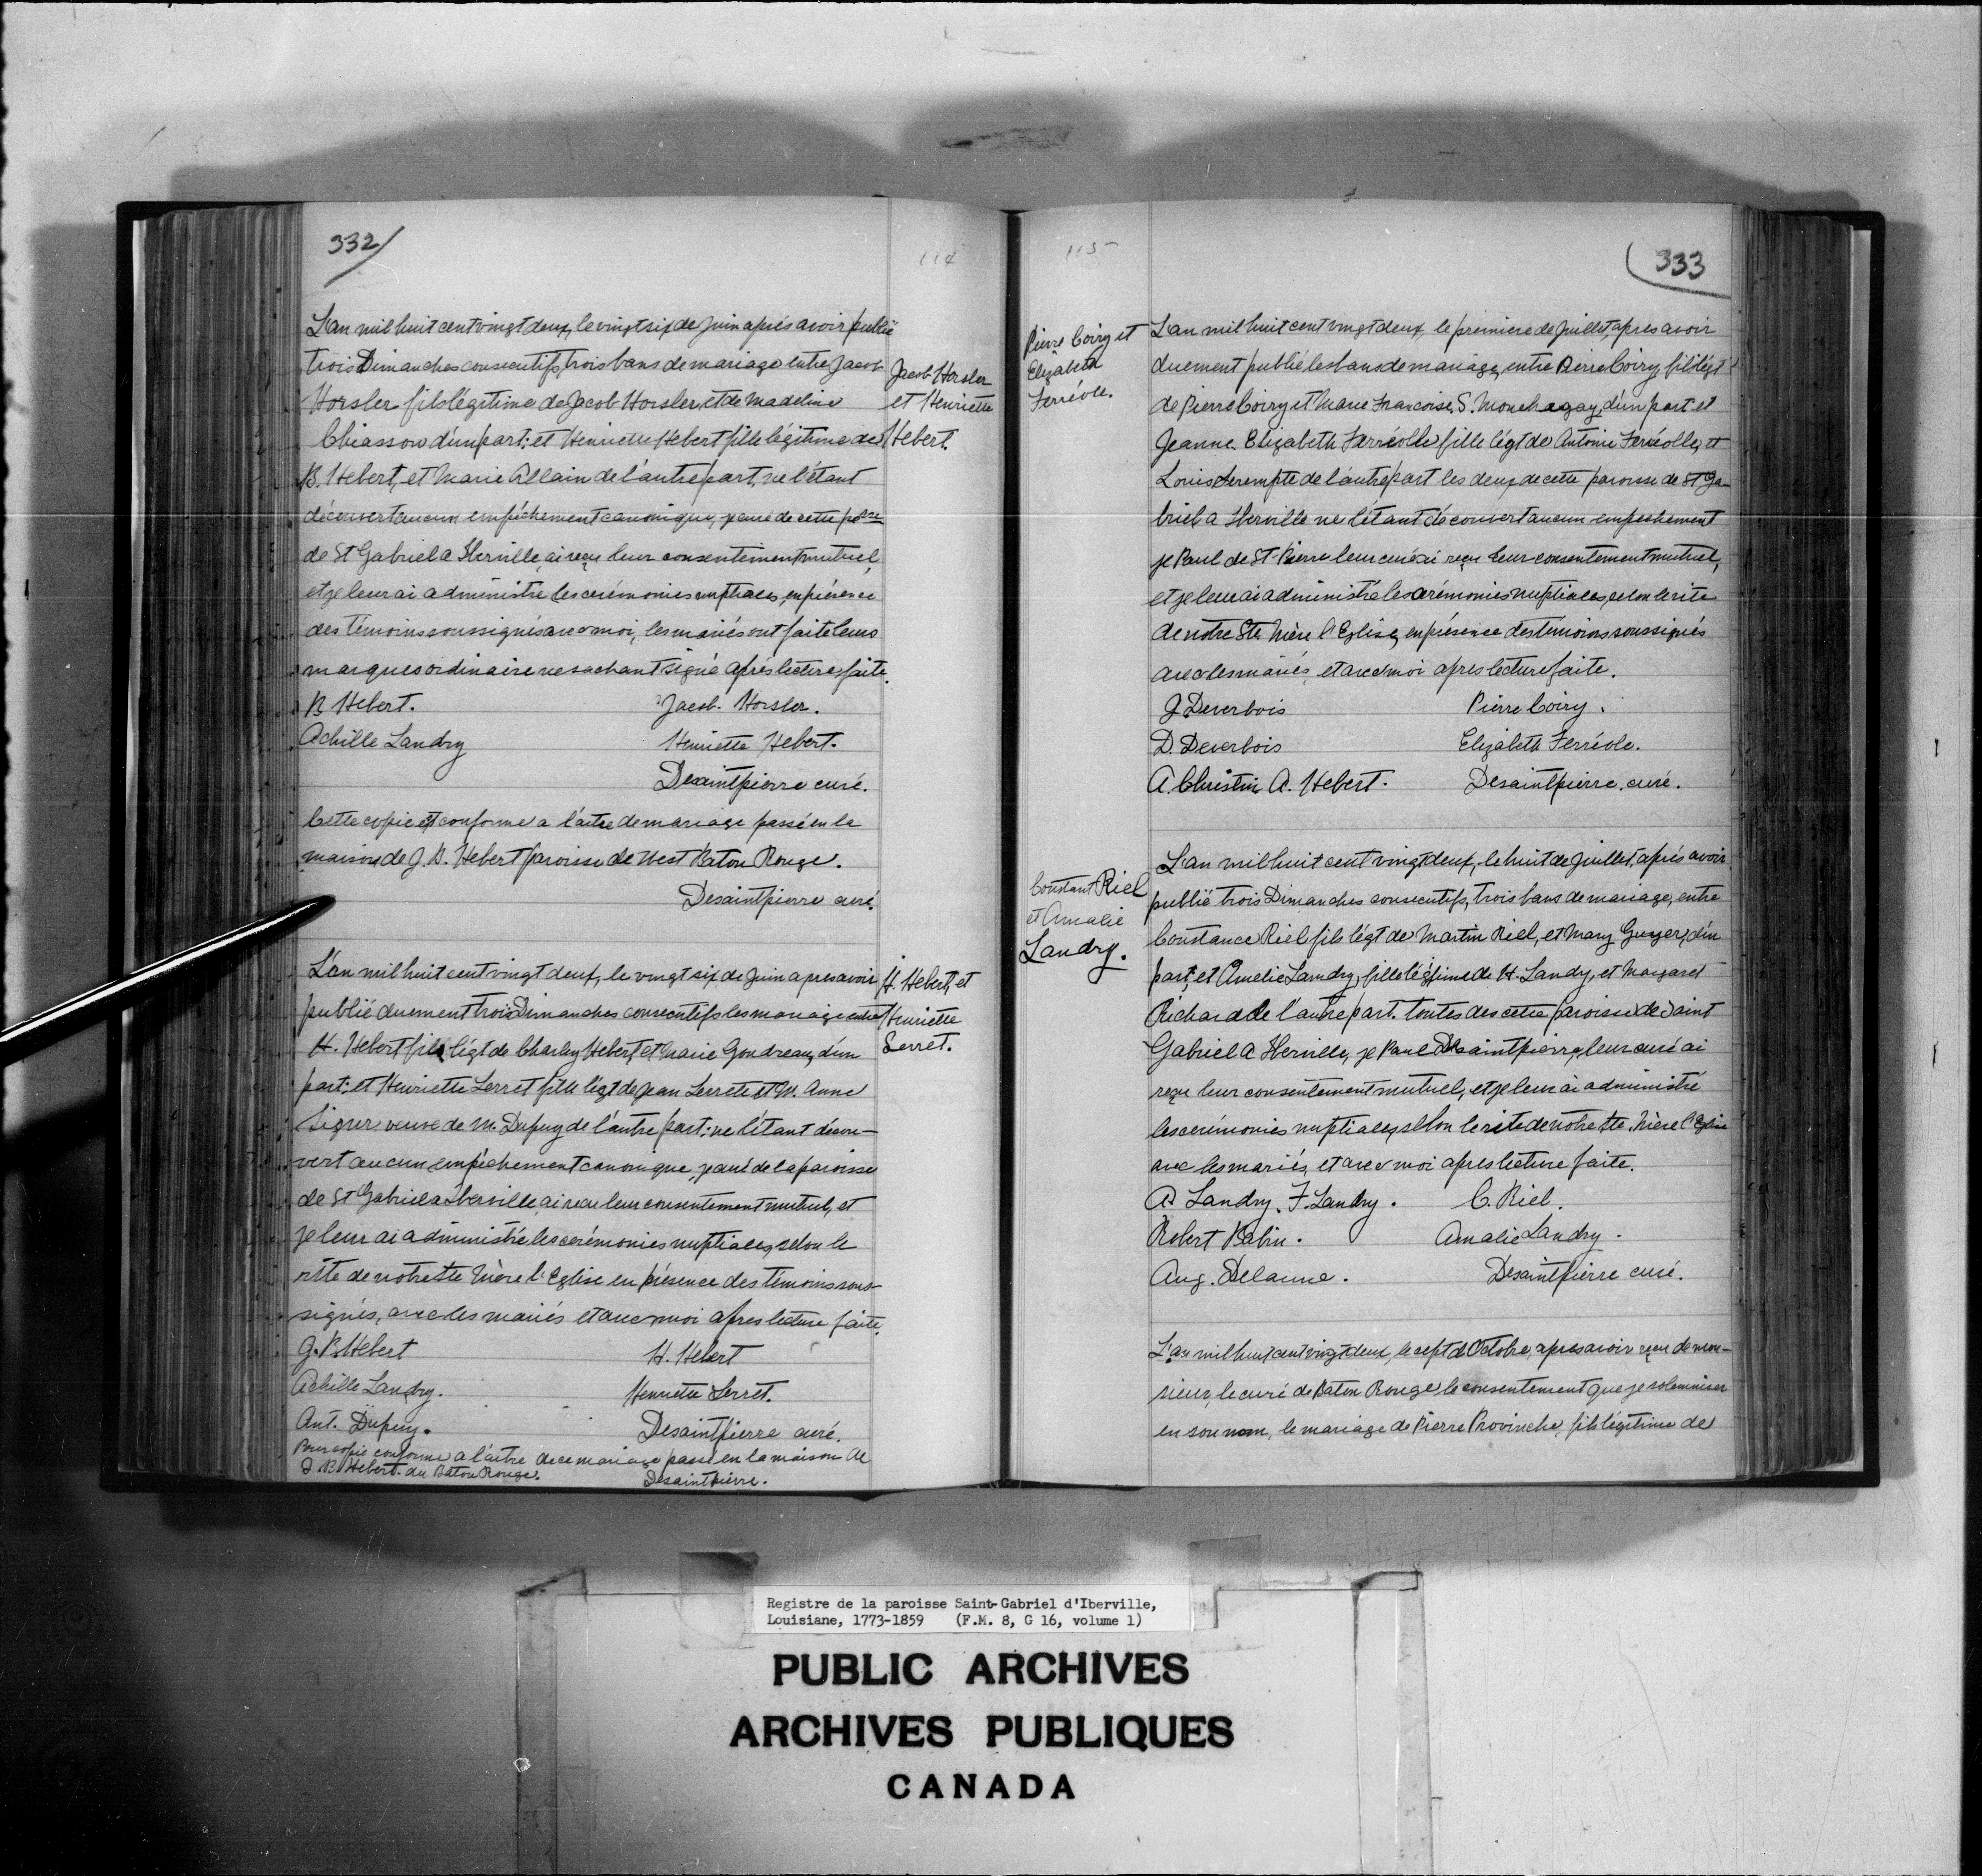 332/
114
L'an mil huit cent vingt deux, le vingt six de Juin aprés avoir publié
trois Dimanches consecutifs, trois bans de mariage entre Jacob
Horsler fils légitime de Jacob Horsler, et de Madeline
Chiasson d'un part; et Henriette Hebert fille légitime de
B. Hebert, et Marie Allain de l'autre part, ne l'étant
découvert aucun empéchement canonique, je curé de cette
de St Gabriel a Iberville, ai reçu leur consentiment mutuel,
et je leur ai administré les cerémonies nuptiales, en présence
des témoins soussignés avec moi, les mariés ont faite leurs
marques ordinaire ne sachant signé aprés lecture faite.
Jacob Horsler
et Henriette
Hebert.
B Hebert. Jacob. Horsler.
Achille Landry Henriette Hebert.
Desaintpierre curé.
Cette copie est conforme a l'aitre de mariage passé en la
maison de J. B. Hebert paroisse de West Baton Rouge.
Desaintpierre curé.
L'an mil huit cent vingt deux, le vingt six de Juin apres avoir
publié duement trois Dimanches consecutifs les mariage entre
H. Hebert fils légt de Charley Hebert et Marie Goudreau, d'un
part; et Henriette Serret fille légt de Jean Serrete et M. Anne
Sigur veuve de M. Dupuy de l'autre part; ne l'étant décou-
vert aucun empéchement canonique, je curé de la paroisse
de St Gabriel a Iberville, ai reçu leur consentement mutuel, et
je leur ai administré les cerémonies nuptiales, selon le
rite de notre Ste Mère l'Eglise en présence des témoins sous-
signés, avec les mariés et avec moi apres lecture faite.
H. Hebert, et
Henriette
Serret.
J. B. Hebert H. Hebert
Achille Landry. Henriette Serret.
Ant. Dupuy. Desaintpierre curé.
Pour copie conforme a l'aitre de ce mariage passé en la maison de
J. B. Hebert. du Baton Rouge. Desaintpierre.
115
333
Pierre Coiry et
Elizabeth
Ferréole.
L'an mil huit cent vingt deux, le premiere de Juillet, apres avoir
duement publié les bans de mariage, entre Pierre Coiry, fils légt
de Pierre Coiry et Marie Francoise, S. Mouchagay, d'un part: et
Jeanne Elizabeth Ferréolle fille légt de Antonie Ferréolle, et
Louise de l'autre part les deux de cette paroisse de St Ga-
briel a Iberville ne l'étant découvert aucun empechement
je Paul de St Pierre leur curé ai reçu leur consentement mutuel,
et je leur ai administré les cerémonies nuptiales, selon le rite
de notre Ste Mère l'Eglise, en présence des temoins soussignés
avec les mariés, et avec moi apres lecture faite.
J. Deverbois Pierre Coiry.
D. Deverbois Elizabeth Ferréole.
A. Christin A. Hebert. Desaintpierre. curé.
Constant Riel
et Amalie
Landry.
L'an mil huit cent vingt deux, le huit de Juillet, aprés avoir
publié trois Dimanches consecutifs, trois bans de mariage, entre
Constance Riel fils légt de Martin Riel, et Mary Guyer, d'un
part, et Amelie Landry, fille légitime de H. Landy, et Margaret
Richard de l'autre part. toutes des cette paroisse de Saint
Gabriel a Iberville, je Paul Desaintpierre, leur curé ai
reçu leur consentement mutuel, et je leur ai administré
les cerémonies nuptiales, selon le rite de notre Ste. Mère l'Eglise
avec les mariés, et avec moi apres lecture faite.
A Landry. F. Landry. C. Riel.
Robert Babin. Amalie Landry.
Aug. Delaune. Desaintpierre curé.
L'an mil huit cent vingt deux, le sept d'Octobre, apres avoir reçu de mon-
sieur, le curé de Baton Rouge, le consentement que je solemniser
en son nom, le mariage de Pierre Provinche, fils légitime de
Registre de la paroisse Saint-Gabriel d'Iberville,
Louisiane, 1773-1859 (F.M. 8, G 16, volume 1)
PUBLIC ARCHIVES
ARCHIVES PUBLIQUES
CANADA